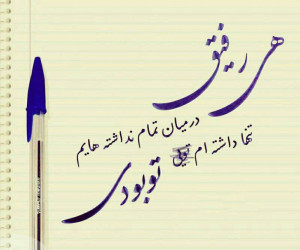 هی رفیق
در میان تمام نداشته هایم
تنها داشته ام تویی توبودی